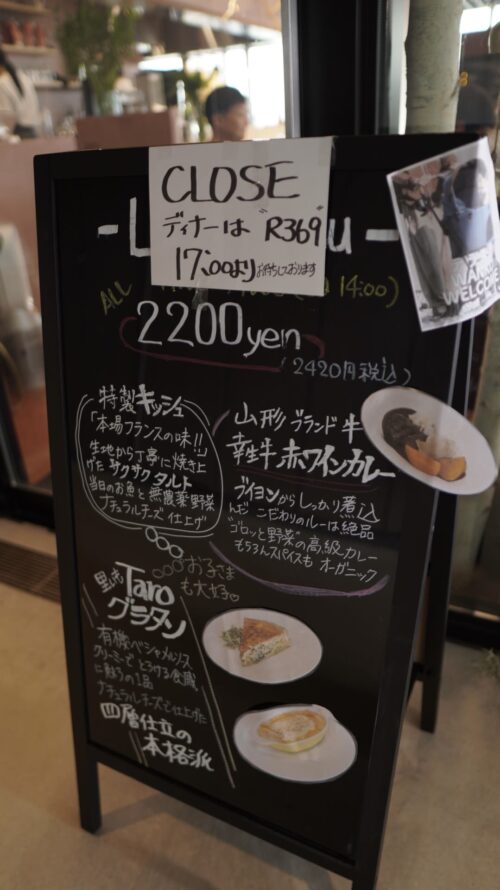 CLOSE
ディナーは "R369"
17:00より お待ちしております
ALL
14:00)
2200yen
(2420円税込)
特製キッシュ
「本場フランスの味!!」
生地から丁寧に焼き上
げた サクサク タルト
当日のお魚と無農薬野菜
ナチュラルチーズ 仕上げ
山形ブランド牛
幸生牛 赤ワインカレー
ブイヨンからしっかり煮込
んだ こだわりのルーは絶品
"ゴロッと野菜"の高級カレー
もちろんスパイスも オーガニック
お子さま
も大好
Taro
グラタン
有機ベシャメルソース
クリーミーで とろける食感
ナチュラルチーズで仕上げた
四層仕立の
本格派
WELCOME